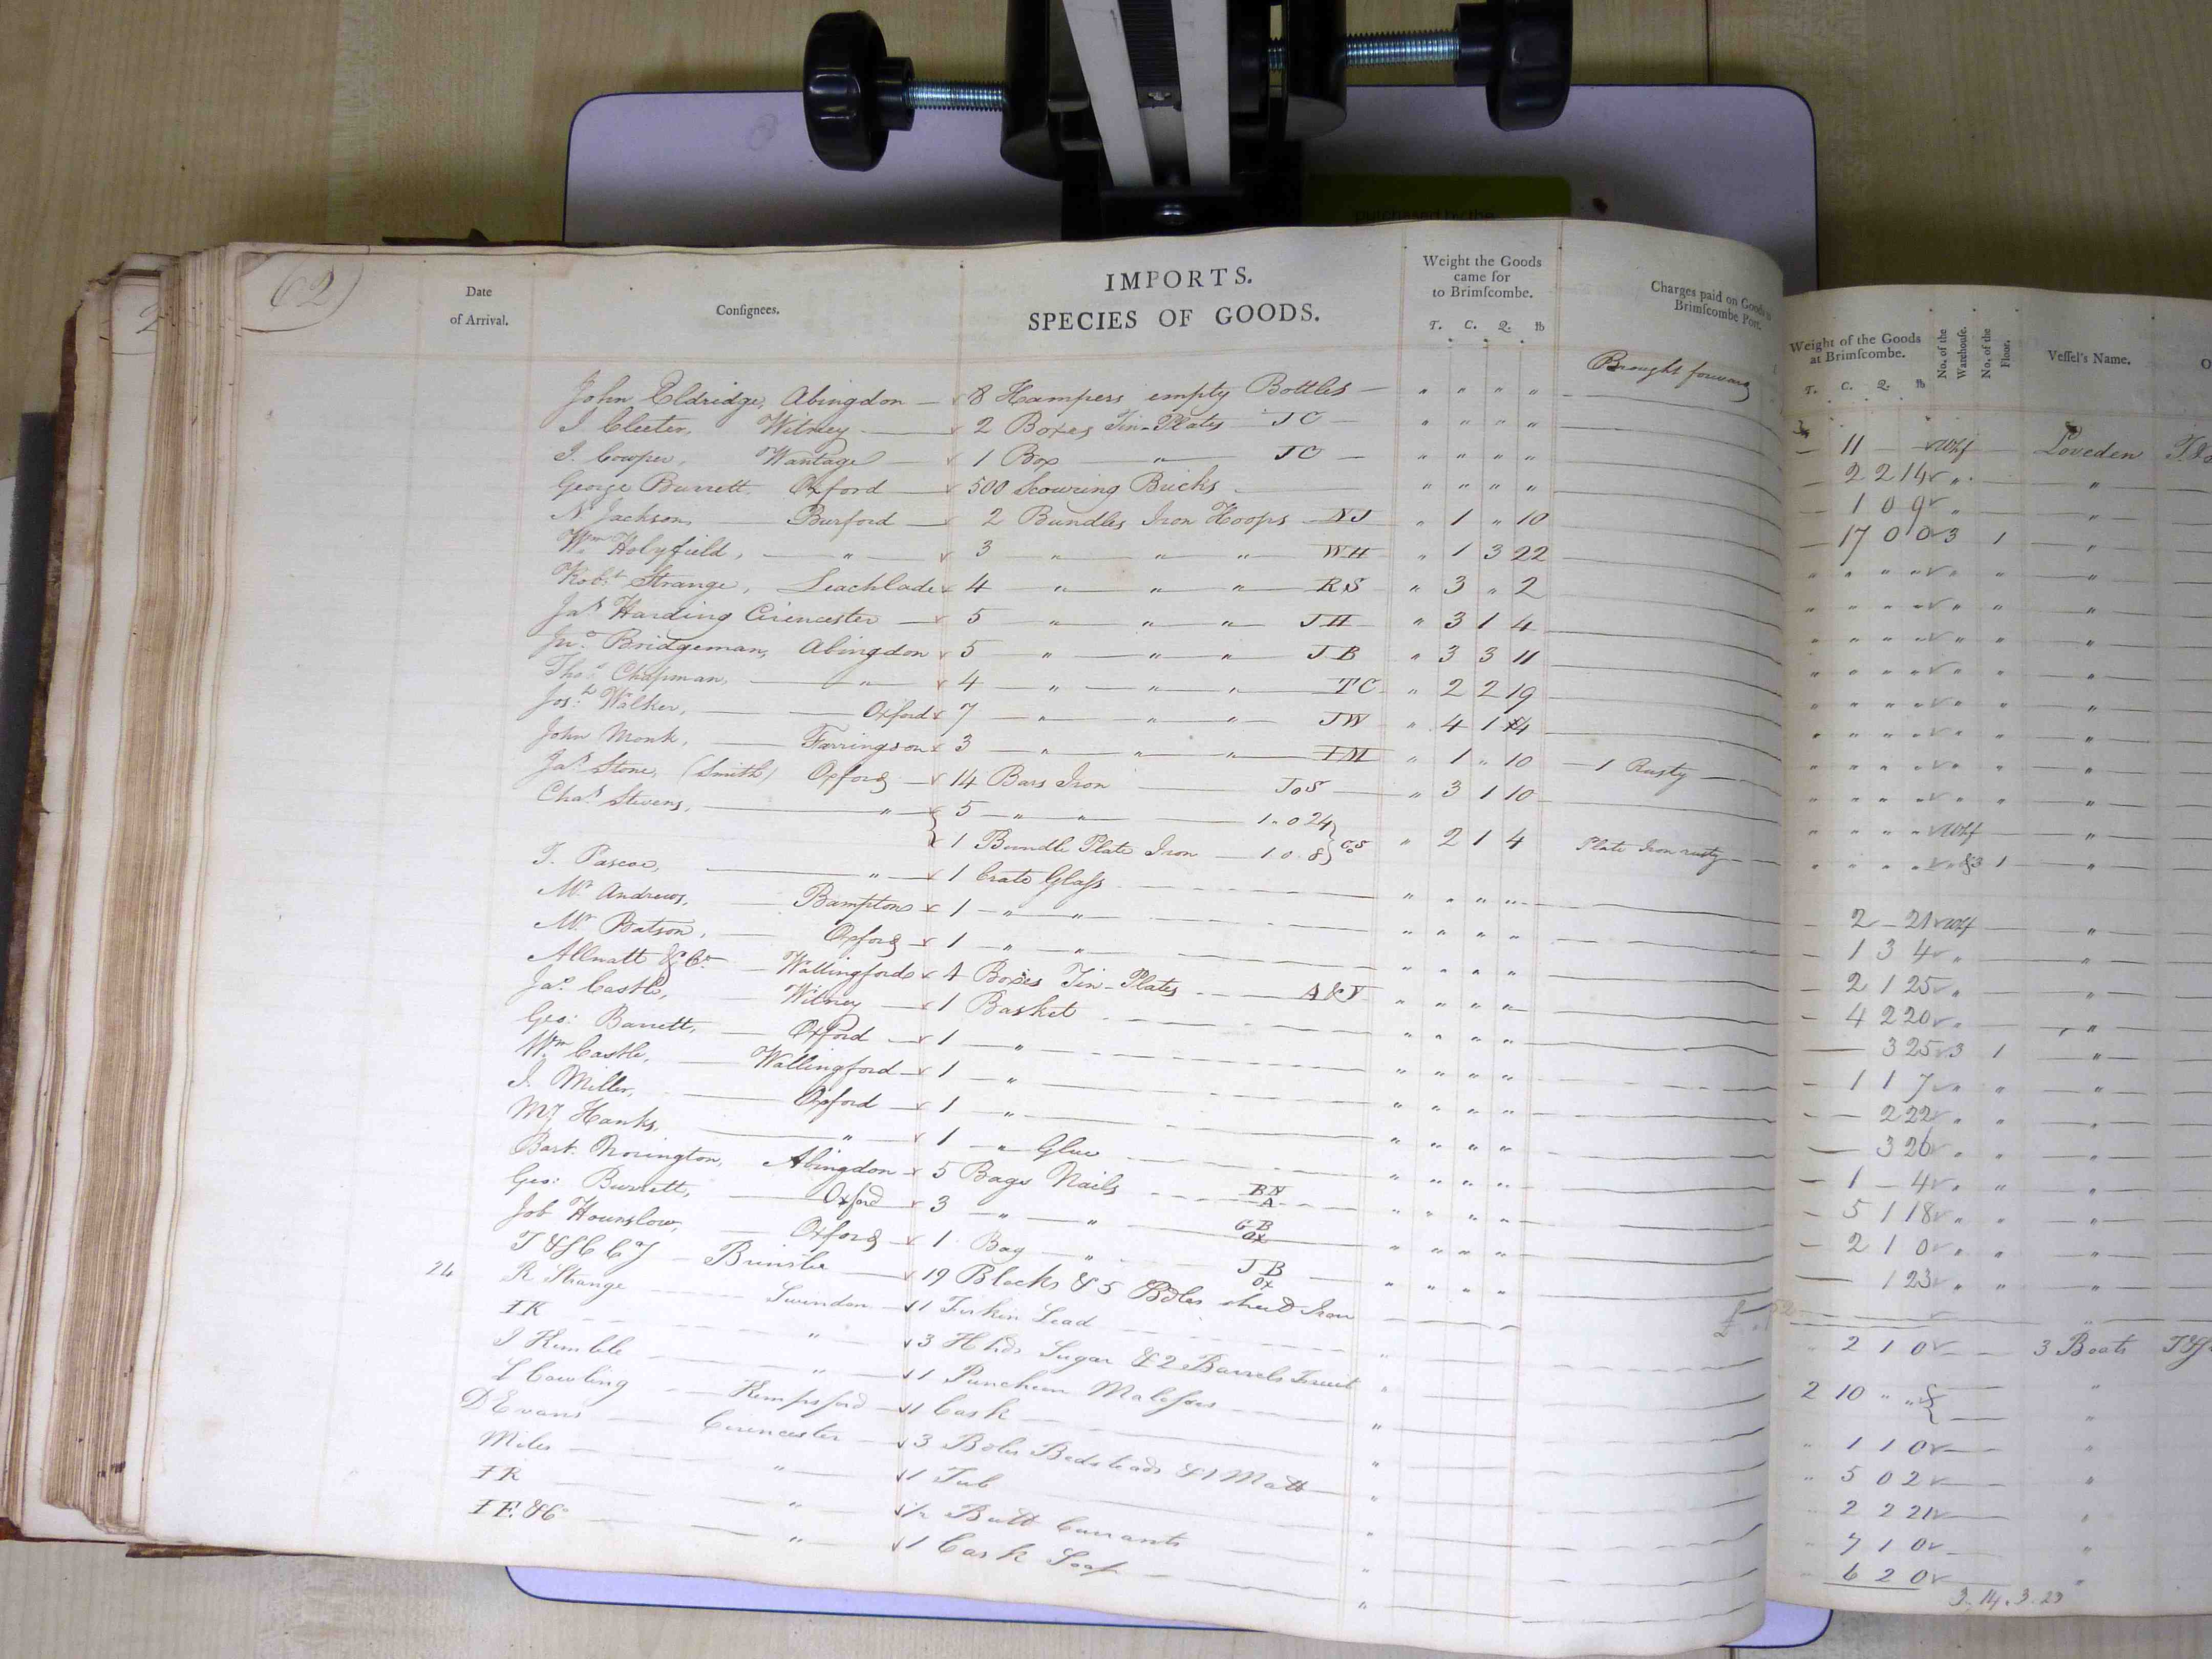 purchased by the
62)
2
Date
of Arrival.
Conſignees.
IMPORTS.
SPECIES OF GOODS.
Weight the Goods
came for
to Brimſcombe.
T. C. Q. lb
Charges paid on Goods to
Brimſcombe Port.
Brought forward
John Eldridge, Abingdon — 8 Hampers empty Bottles — " " " "
J. Cleeter, Witney — 2 Boxes Tin-Plates JC — " " " "
J. Cowper, Wantage — 1 Box " JC — " " " "
George Burrett. Oxford — 500 Scouring Bricks — " " " "
N. Jackson, Burford — 2 Bundles Iron Hoops NJ " 1 " 10
Wm Holyfield, — " — 3 " " " WH " 1 3 22
Robt Strange, Leachlade 4 " " " RS " 3 " 2
Jas Harding Cirencester — 5 " " " JH " 3 1 4
Jno Bridgeman, Abingdon 5 " " " JB " 3 3 11
Thos Chapman, — " — 4 " " " TC " 2 2 19
Josh Walker, — Oxford 7 " " " JW " 4 1 14
John Monk, — Farringson 3 " " " IM " 1 " 10 — 1 Rusty —
Jas Stone, (Smith) Oxford — 14 Bars Iron — JoS — " 3 1 10
Chas Stevens, — " — 5 — " — " — 1. 0 24
1 Bundle Plate Iron — 1. 0. 8 } CoS " 2 1 4 Plate Iron rusty —
T. Pascoe, — " — 1 Crate Glaſs — " " " "
Mr Andrews, — Bampton 1 — " — " — " " " "
Mr Batson, — Oxford — 1 — " — " — " " " "
Allnatt & Co — Wallingford 4 Boxes Tin-Plates — A&V " " " "
Jas Castle, — Witney — 1 Basket — " " " "
Geo: Barrett, — Oxford — 1 — " — " " " "
Wm Castle, — Wallingford — 1 — " — " " " "
J. Miller, — Oxford — 1 — " — " " " "
Hanks, — " — 1 — " Glue — " " " "
Bart. Norington, Abingdon 5 Bags Nails — BN A " " " "
Geo: Burrett, — Oxford 3 — " — " GB OX " " " "
Job Hounslow, — Oxford 1 Bag — " — JB OX — " " " "
24 — 19 Blocks & 5 Bdles sheet Iron
R Strange — Swindon 1 Firkin Lead —
IK — " — 3 Hhds Sugar & 2 Barrels Fruit "
J Kemble — " — 1 Puncheon Molaſses — "
L Cowling — Kempsford — 1 Cask — "
D Evans — Cirencester — 3 Bdles Bedsteads & 1 Matt — "
Miles — " — 1 Tub — "
IR — " — 1/2 Butt Currants — "
IF. & Co — " — 1 Cask Soap — "
Weight of the Goods
at Brimſcombe.
T. C. Q. lb
No. of the
Warehouſe.
No. of the
Floor.
Veſſel's Name.
O
— 11 — Whf — Loveden
— 2 2 14 " — "
— 1 0 9 " — "
— 17 0 0 3 1 "
" " " " " " "
" " " " " " "
" " " " " " "
" " " " " " "
" " " " " " "
" " " " " " "
" " " " " " "
" " " " " " "
" " " " Whf — "
" " " " " &3 1 "
— 2 — 21 Whf — "
— 1 3 4 " — "
— 2 1 25 " — "
— 4 2 20 " — "
— 3 25 3 1 "
— 1 1 7 " " "
— 2 22 " " "
— 3 26 " " "
— 1 — 4 " " "
— 5 1 18 " " "
— 2 1 0 " " "
— 1 23 " " "
" 2 1 0 — 3 Boats
2 10 " " — "
" 1 1 0 — "
" 5 0 2 — "
" 2 2 21 — "
" 7 1 0 — "
" 6 2 0
3. 14. 3. 23